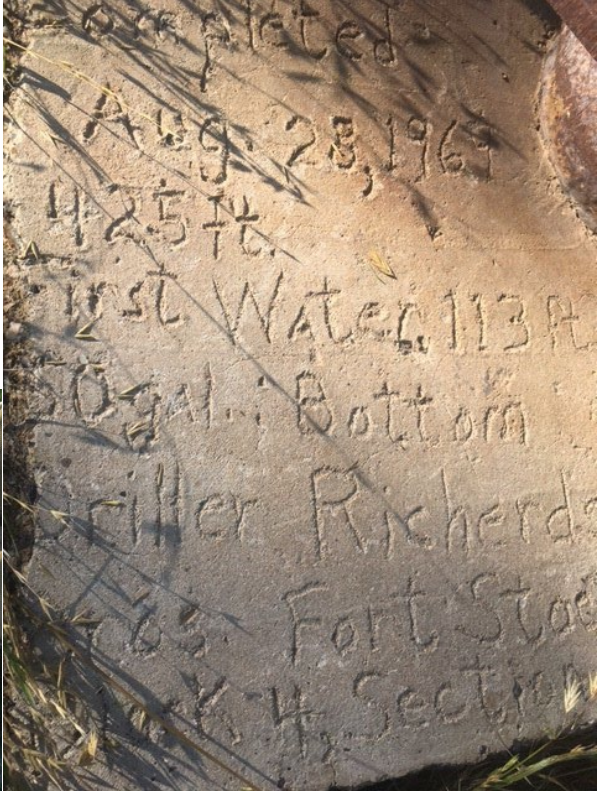 Completed
Aug. 28, 1969
425 ft.
First Water, 113 ft
50 gal.; Bottom
Driller Richerds
Bros Fort Stoc
Block 4, Section